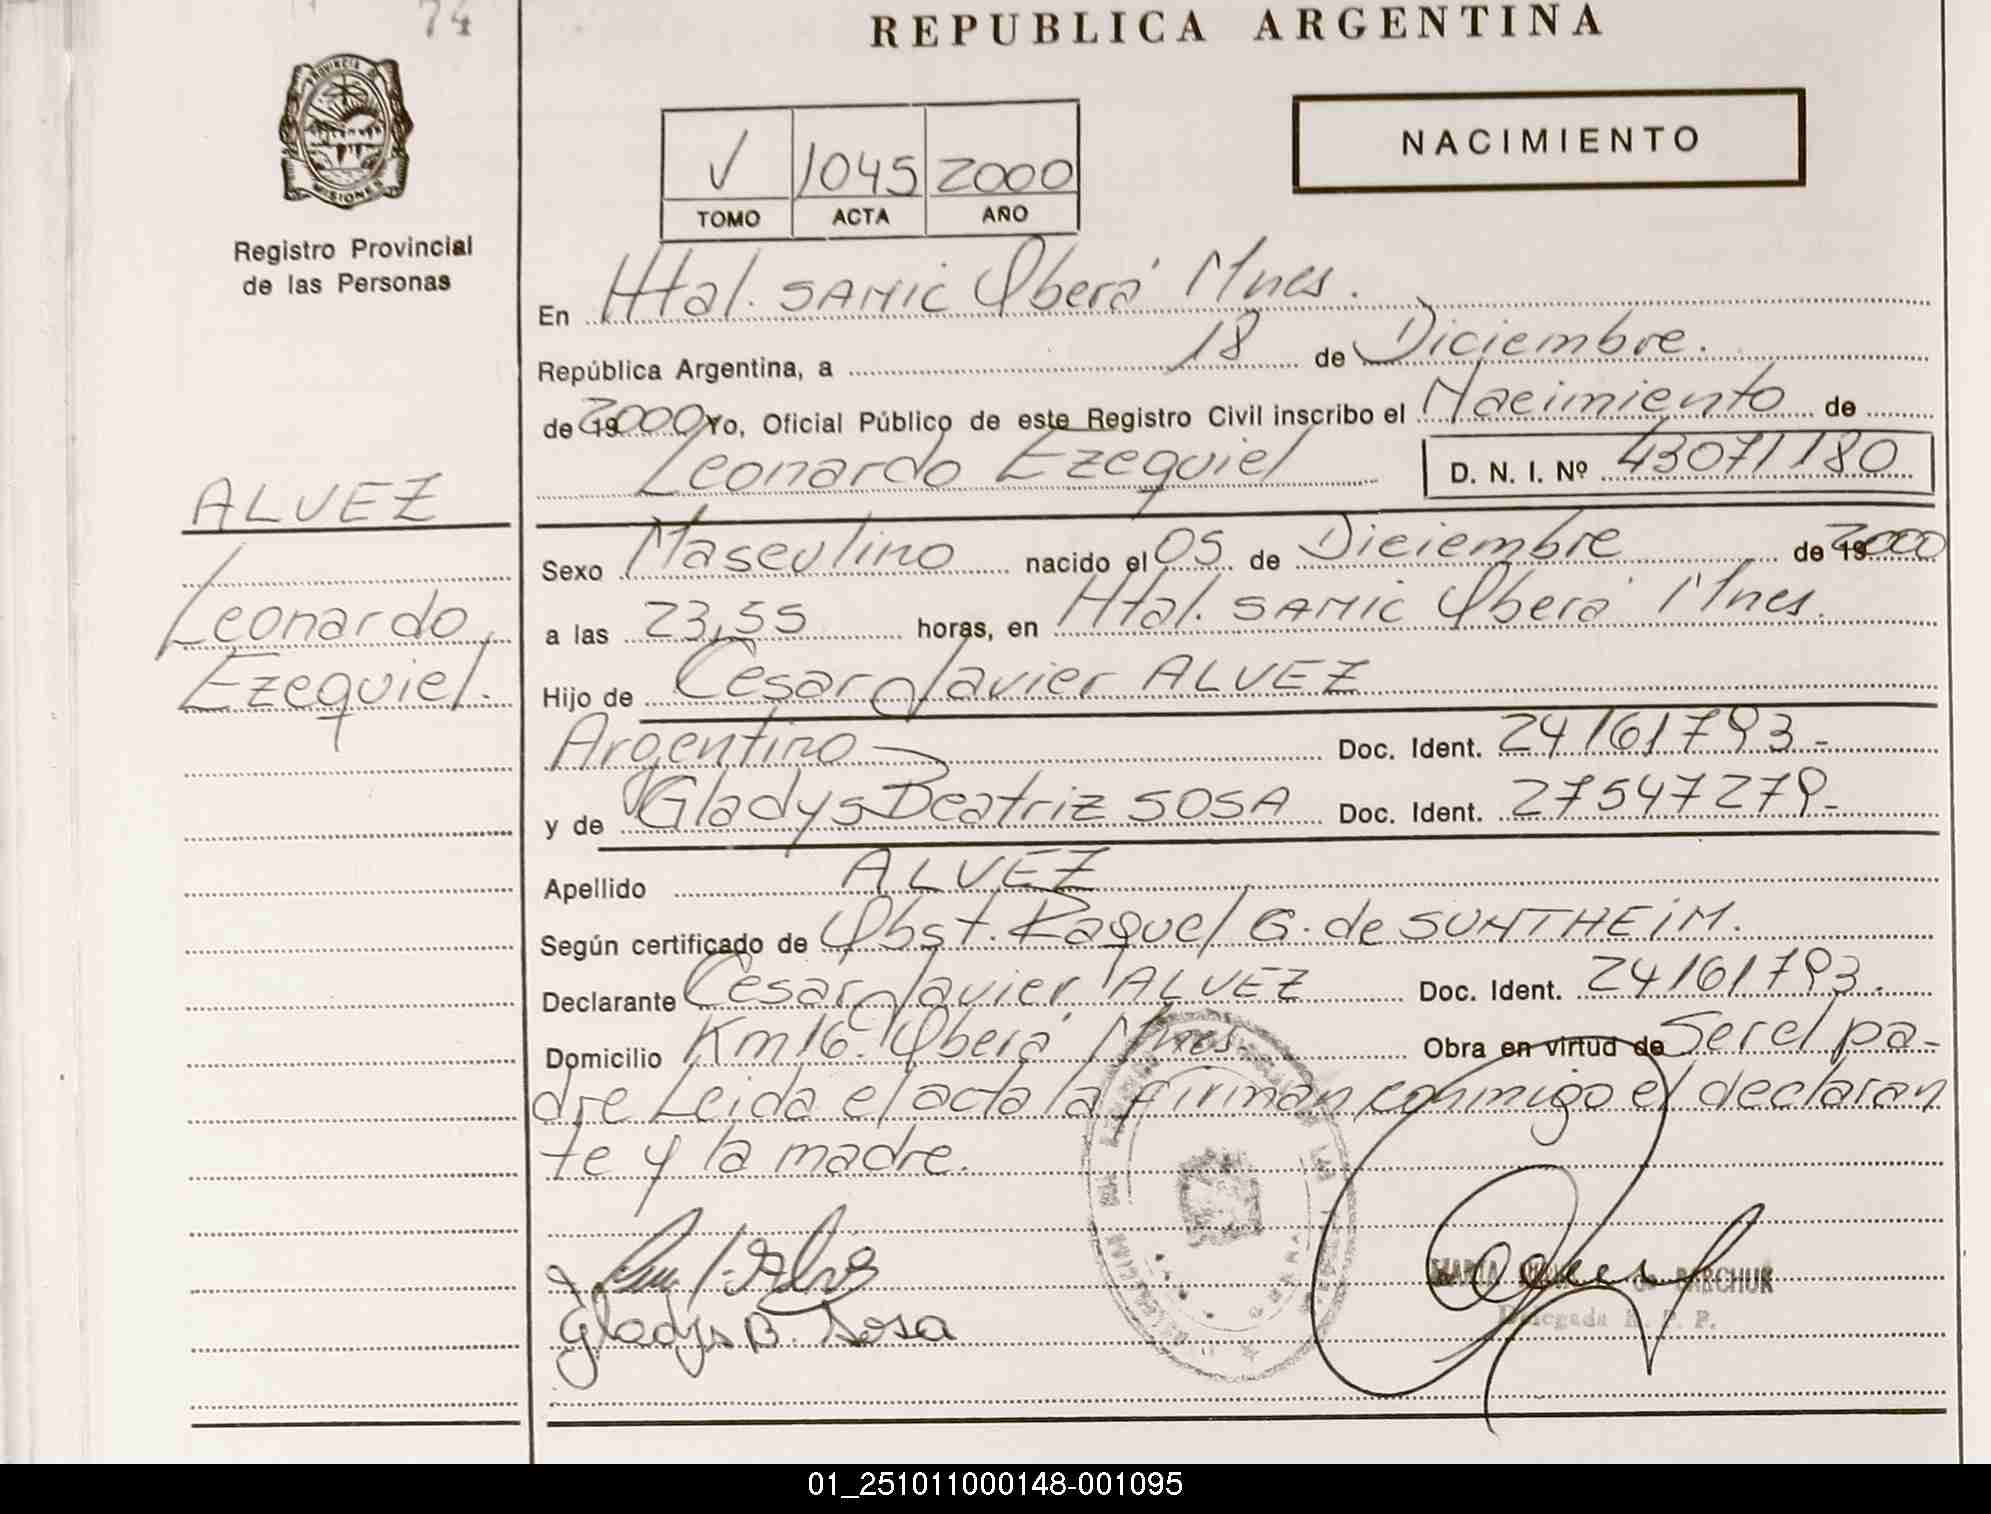 74
REPUBLICA ARGENTINA
PROVINCIA DE MISIONES
Registro Provincial
de las Personas
NACIMIENTO
V 1045 2000
TOMO ACTA AÑO
En Htal. SAMIC Oberá Mnes.
República Argentina, a 18 de Diciembre.
de 2000 Yo, Oficial Público de este Registro Civil inscribo el Nacimiento de
Leonardo Ezequiel D. N. I. Nº 43071180
ALVEZ
Leonardo
Ezequiel.
Sexo Masculino nacido el 05 de Diciembre de 2000
a las 23,55 horas, en Htal. SAMIC Oberá Mnes.
Hijo de Cesar Javier ALVEZ
Argentino Doc. Ident. 24161793.-
y de Gladys Beatriz SOSA Doc. Ident. 27547279.-
Apellido ALVEZ
Según certificado de Obst. Raquel G. de SUNTHEIM.
Declarante Cesar Javier ALVEZ Doc. Ident. 24161793.
Domicilio Km 16. Oberá Mnes. Obra en virtud de Ser el pa-
dre Leida el acta la firman conmigo el declaran
te y la madre.
Gladys B. Sosa
MARIA de BARCHUK
Delegada R. P. P.
01_251011000148-001095